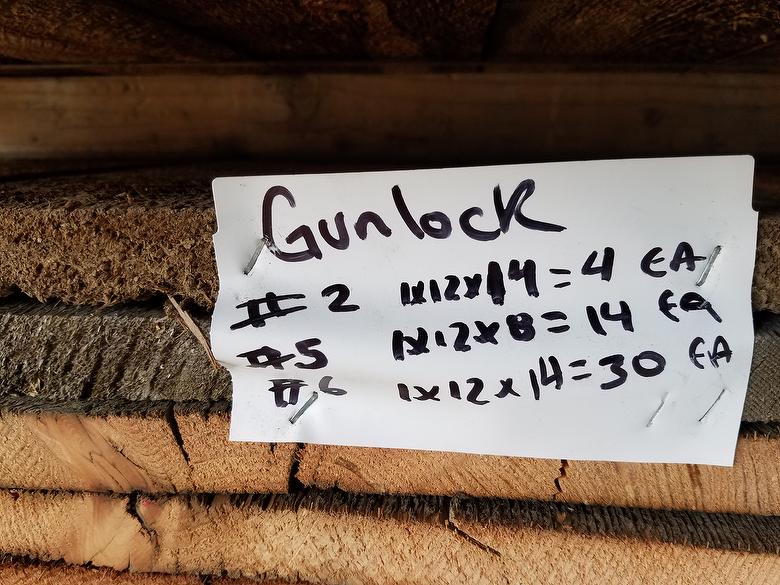 Gunlock
#2 1x12x14 = 4 EA
#5 1x12x8 = 14 EA
#6 1x12x14 = 30 EA